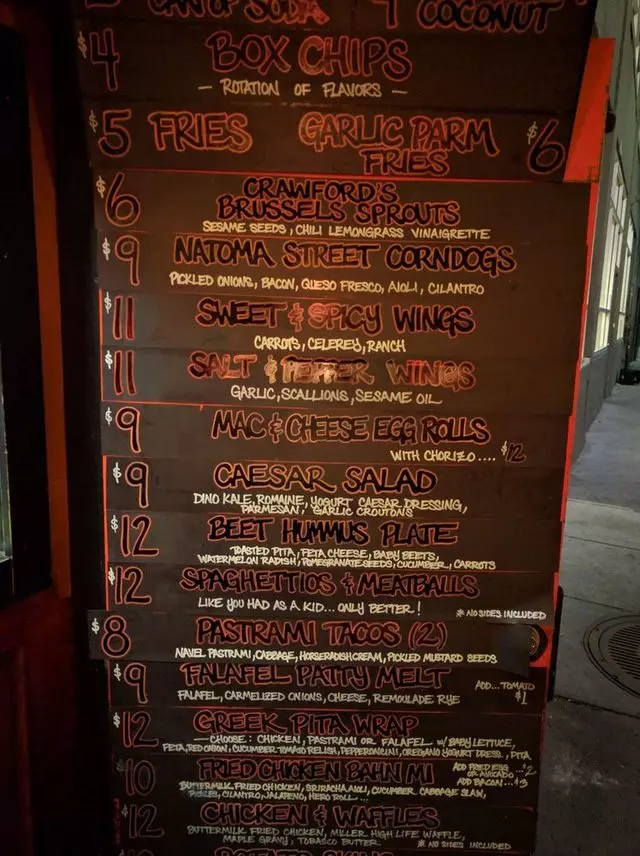 CAN OF SODA
COCONUT
$4 BOX CHIPS
— ROTATION OF FLAVORS —
$5 FRIES GARLIC PARM FRIES $6
$6 CRAWFORD'S
BRUSSELS SPROUTS
SESAME SEEDS, CHILI LEMONGRASS VINAIGRETTE
$9 NATOMA STREET CORNDOGS
PICKLED ONIONS, BACON, QUESO FRESCO, AIOLI, CILANTRO
$11 SWEET & SPICY WINGS
CARROTS, CELEREY, RANCH
$11 SALT & PEPPER WINGS
GARLIC, SCALLIONS, SESAME OIL
$9 MAC & CHEESE EGG ROLLS
WITH CHORIZO.... $12
$9 CAESAR SALAD
DINO KALE, ROMAINE, YOGURT CAESAR DRESSING,
PARMESAN, GARLIC CROUTONS
$12 BEET HUMMUS PLATE
TOASTED PITA, FETA CHEESE, BABY BEETS,
WATERMELON RADISH, POMEGRANATE SEEDS, CUCUMBER, CARROTS
$12 SPAGHETTIOS & MEATBALLS
LIKE YOU HAD AS A KID... ONLY BETTER! * NO SIDES INCLUDED
$8 PASTRAMI TACOS (2)
NAVEL PASTRAMI, CABBAGE, HORSERADISH CREAM, PICKLED MUSTARD SEEDS
$9 FALAFEL PATTY MELT ADD...TOMATO $1
FALAFEL, CARMELIZED ONIONS, CHEESE, REMOULADE RYE
$12 GREEK PITA WRAP
— CHOOSE: CHICKEN, PASTRAMI OR FALAFEL W/ BABY LETTUCE,
FETA, RED ONION, CUCUMBER TOMATO RELISH, PEPPERONCINI, OREGANO YOGURT DRESS., PITA
$10 FRIED CHICKEN BAHN MI ADD FRIED EGG
OR AVOCADO...$2
ADD BACON...$3
BUTTERMILK FRIED CHICKEN, SRIRACHA AIOLI, CUCUMBER CABBAGE SLAW,
PICKLES, CILANTRO, JALAPENO, HERO ROLL...
$12 CHICKEN & WAFFLES
BUTTERMILK FRIED CHICKEN, MILLER HIGH LIFE WAFFLE,
MAPLE GRAVY, TOBASCO BUTTER * NO SIDES INCLUDED
POTATO SKINS